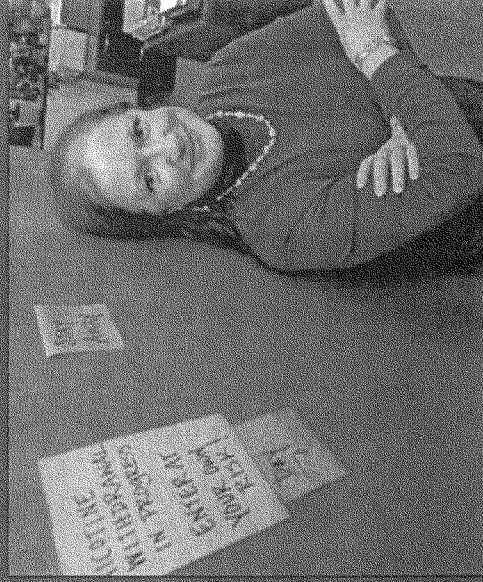 ICOTINE
WITHDRAWAL
IN PROGRESS
ENTER AT
YOUR OWN
RISK!